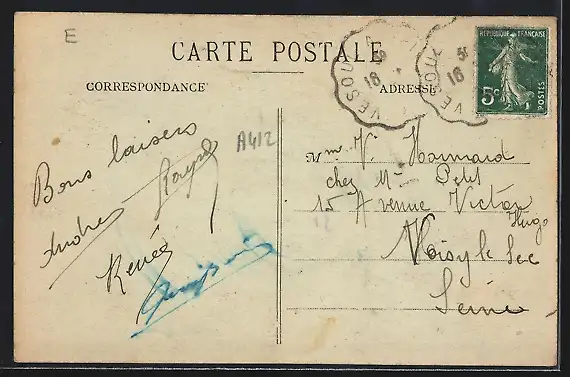 E
CARTE POSTALE
CORRESPONDANCE
ADRESSE
REPUBLIQUE FRANÇAISE
5c
POSTES
VESOUL
18
VESOUL
18
A412
Bons baisers
Andrée
Renée
Mme V.
chez Mr Petit
15 Avenue Victor
Hugo
Noisy le Sec
Seine